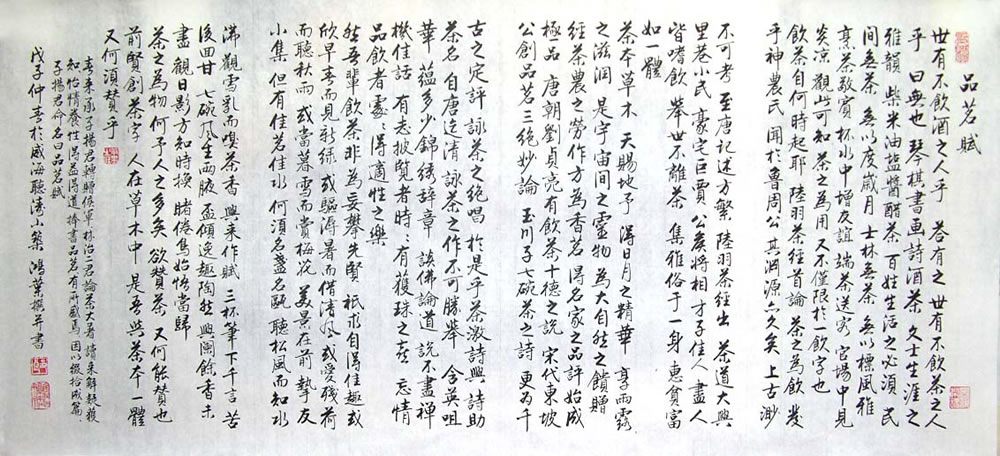 品茗賦
世有不飲酒之人乎 答有之 世有不飲茶之人
乎 曰無也 琴棋書画詩酒茶 文士生涯之
雅韻 柴米油鹽醬醋茶 百姓生活之必須 民
間無茶 無以度歲月 士林無茶 無以標風雅
烹茶敬賓 杯水中增友誼 端茶送客 官場中見
炎涼 觀此可知茶之為用 又不僅限於一飲字也
飲茶自何時起耶 陸羽茶經首論 茶之為飲 發
乎神農氏 聞於魯周公 其淵源亦久矣 上古渺
不可考 至唐記述方繁 陸羽茶經出 茶道大興
里巷小民 豪宅巨賈 公矦將相 才子佳人 盡人
皆嗜飲 舉世不離茶 集雅俗于一身 惠貧富
如一體
茶本草木 天賜地予 得日月之精華 享雨露
之滋潤 是宇宙間之靈物 為大自然之饋贈
經茶農之勞作方為香茗 得名家之品評始成
極品 唐朝劉貞亮有飲茶十德之説 宋代東坡
公創品茗三絕妙論 玉川子七碗茶之詩 更為千
古之定評 詠茶之絕唱 於是乎茶激詩興 詩助
茶名 自唐迄清 詠茶之作不可勝舉 含英咀
華 蘊多少錦繡辭章 談佛論道 說不盡禪
機佳話 有志披覽者時時有獲珠之喜 忘情
品飲者處處得適性之樂
然吾輩飲茶非為妄攀先賢 祇求自得佳趣 或
欣早春而見新綠 或驅溽暑而借清風 或愛殘荷
而聽秋雨 或當暮雪而賞梅花 美景在前 摯友
小集 但有佳茗佳水 何須名盞名甌 聽松風而知水
沸 觀雪乳而嗅茶香 興來作賦 三杯筆下千言 苦
後回甘 七碗風生兩腋 盃傾逸趣陶然 興闌餘香未
盡 觀日影方知時換 睹倦鳥始悟當歸
茶之為物 何予人之多矣 欲贊茶 又何能贊也
前賢創茶字 人在草木中 是吾與茶本一體
又何須贊乎
春來承子揚君轉贈侯軍林治二君論茶大著 讀來解頤 獲
知怡情養性 得益得道 捧書品茗 有所感焉 因以綴拾成篇
子揚君命名曰品茗賦
戊子仲春於威海聽濤小築 鴻葉撰并書